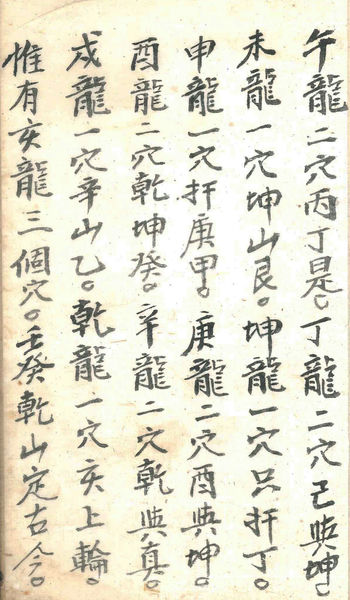 午龍二穴丙丁是。丁龍二穴己與坤。
未龍一穴坤山艮。坤龍一穴只扦丁。
申龍一穴扦庚甲。庚龍二穴酉與坤。
酉龍二穴乾坤癸。辛龍二穴乾與真。
戌龍一穴辛山乙。乾龍一穴亥上輪。
惟有亥龍三個穴。壬癸乾山定古今。